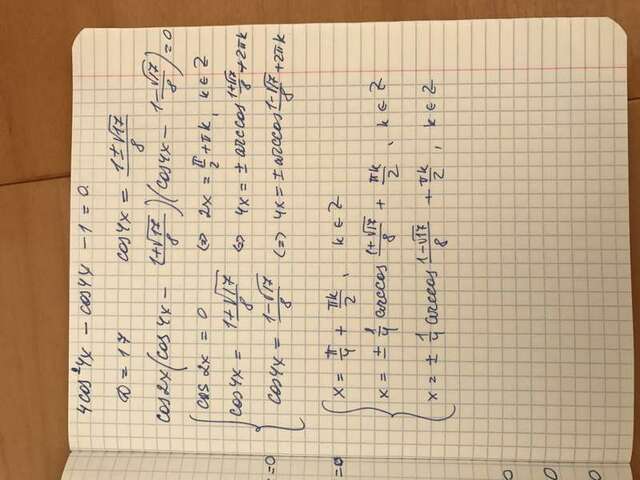 4cos²4x − cos4x − 1 = 0.
D = 17 cos4x = (1±√17)/8
cos2x(cos4x − (1+√17)/8)(cos4x − (1−√17)/8) = 0
cos2x = 0 ⇔ 2x = π/2 + πk, k ∈ Z
cos4x = (1+√17)/8 ⇔ 4x = ± arccos (1+√17)/8 + 2πk
cos4x = (1−√17)/8 ⇔ 4x = ± arccos (1−√17)/8 + 2πk
=0
=0
x = π/4 + πk/2, k ∈ Z
x = ± 1/4 arccos (1+√17)/8 + πk/2, k ∈ Z
x = ± 1/4 arccos (1−√17)/8 + πk/2, k ∈ Z
0
0
0